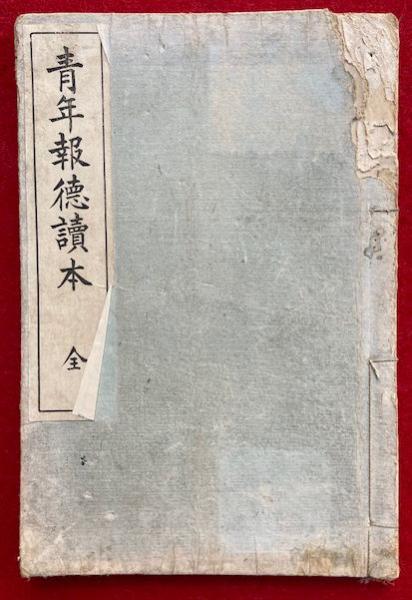 青年報德讀本 全